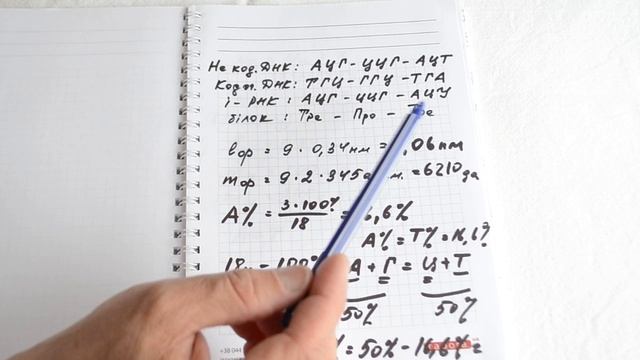 Не код. ДНК: АЦГ - ЦЦГ - АЦТ
Код. ДНК: ТГЦ - ГГЦ - ТГА
і - РНК: АЦГ - ЦЦГ - АЦУ
білок: Тре - Про -
lор = 9 · 0,34нм = ,06нм
mор = 9 · 2 · 345 = 6210да
А% = 3·100% / 18 = ,6%
А% = Т% = 16,6%
18н = 100% А + Г = Ц + Т
50% 50%
% = 50% - 16,6% =
+38 044